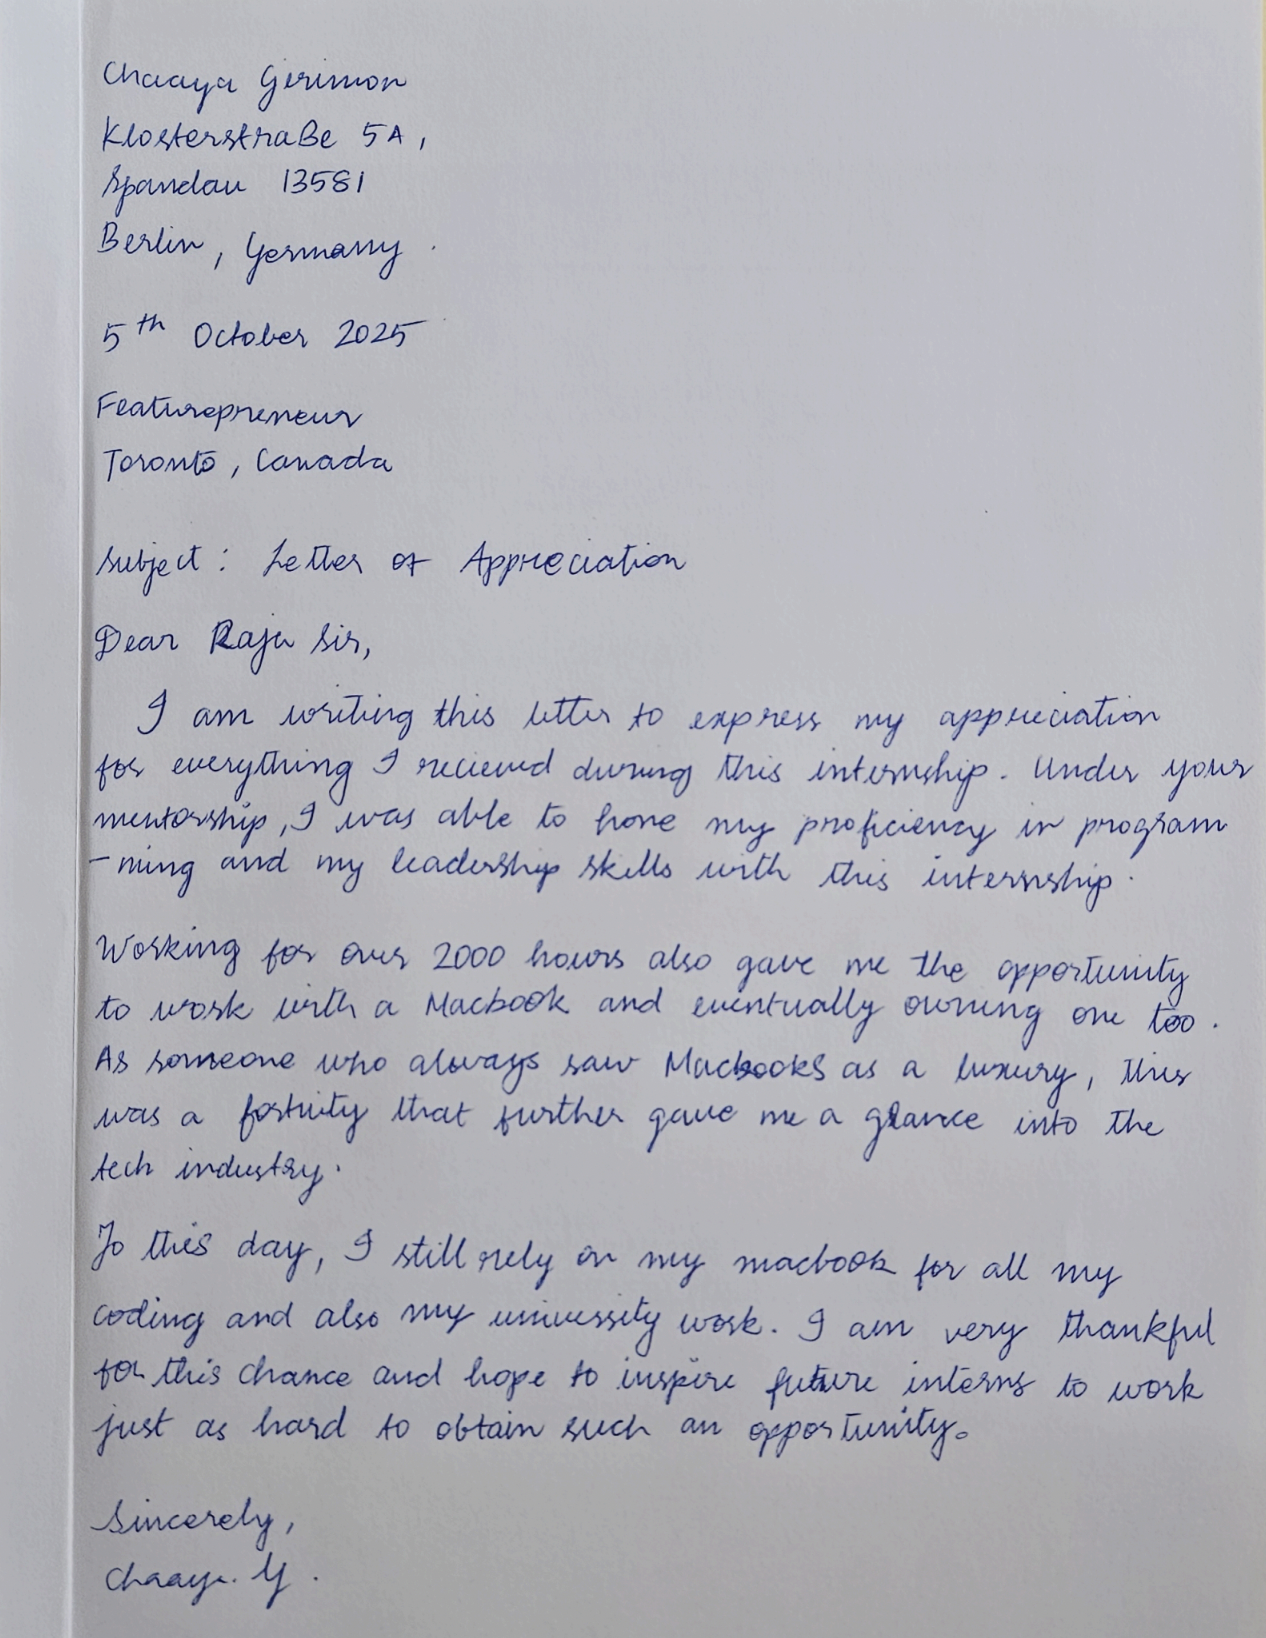 Chaaya Gerimon
Klosterstraße 5A,
Spandau 13581
Berlin, Germany.
5th October 2025
Featurepreneur
Toronto, Canada
Subject: Letter of Appreciation
Dear Raju Sir,
I am writing this letter to express my appreciation
for everything I recieved during this internship. Under your
mentorship, I was able to hone my proficiency in program
-ming and my leadership skills with this internship.
Working for over 2000 hours also gave me the opportunity
to work with a Macbook and eventually owning one too.
As someone who always saw Macbooks as a luxury, this
was a fortuity that further gave me a glance into the
tech industry.
To this day, I still rely on my macbook for all my
coding and also my university work. I am very thankful
for this chance and hope to inspire future interns to work
just as hard to obtain such an opportunity.
Sincerely,
Chaaya. G.